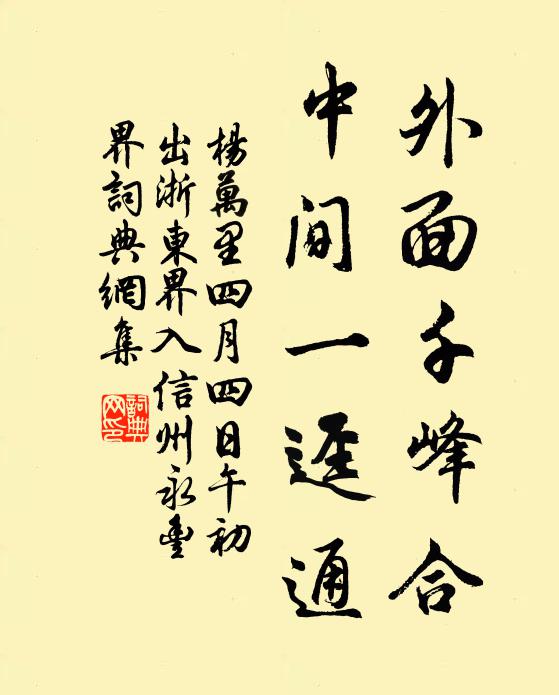 外面千峰合
中间一迳通
楊萬里四月四日午初
出浙東界入信州永豐
界詞典網集
詞典网印